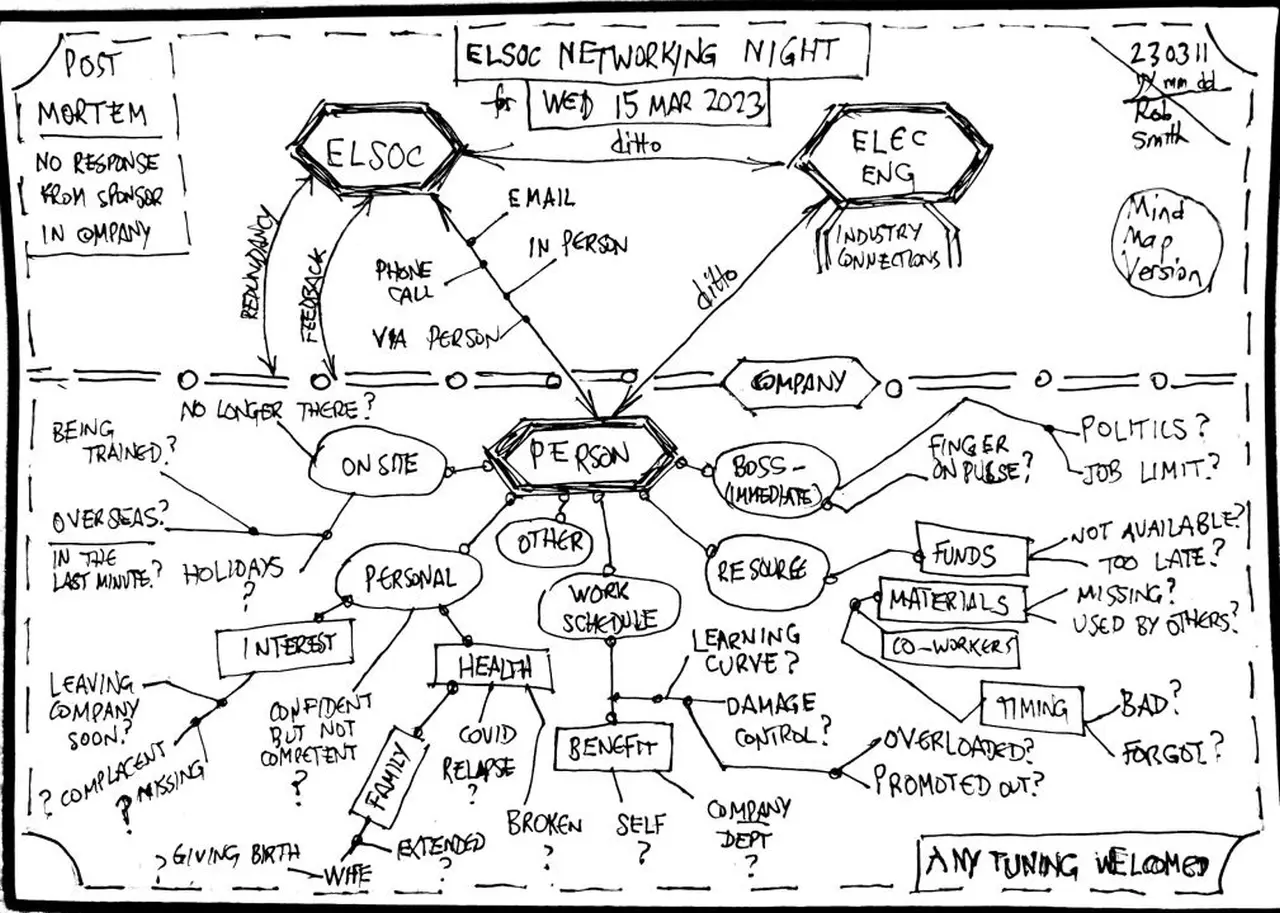 POST
MORTEM
NO RESPONSE
FROM SPONSOR
IN COMPANY
ELSOC NETWORKING NIGHT
for WED 15 MAR 2023
230311
yy mm dd
Rob
Smith
Mind
Map
Version
ELSOC
ditto
ELEC
ENG
INDUSTRY
CONNECTIONS
REDUNDANCY
FEEDBACK
EMAIL
IN PERSON
PHONE
CALL
VIA PERSON
ditto
COMPANY
NO LONGER THERE?
BEING
TRAINED?
ON SITE
OVERSEAS?
IN THE
LAST MINUTE?
HOLIDAYS
?
PERSON
BOSS -
(IMMEDIATE)
FINGER
ON PULSE?
POLITICS?
JOB LIMIT?
OTHER
PERSONAL
WORK
SCHEDULE
RESOURCE
FUNDS
NOT AVAILABLE?
TOO LATE?
MATERIALS
MISSING?
USED BY OTHERS?
CO-WORKERS
TIMING
BAD?
FORGOT?
INTEREST
LEAVING
COMPANY
SOON?
? COMPLACENT
? MISSING
CONFIDENT
BUT NOT
COMPETENT
?
HEALTH
COVID
RELAPSE
?
BROKEN
?
FAMILY
EXTENDED
?
WIFE
? GIVING BIRTH
LEARNING
CURVE?
DAMAGE
CONTROL?
OVERLOADED?
PROMOTED OUT?
BENEFIT
SELF
?
COMPANY
DEPT
?
ANY TUNING WELCOMED